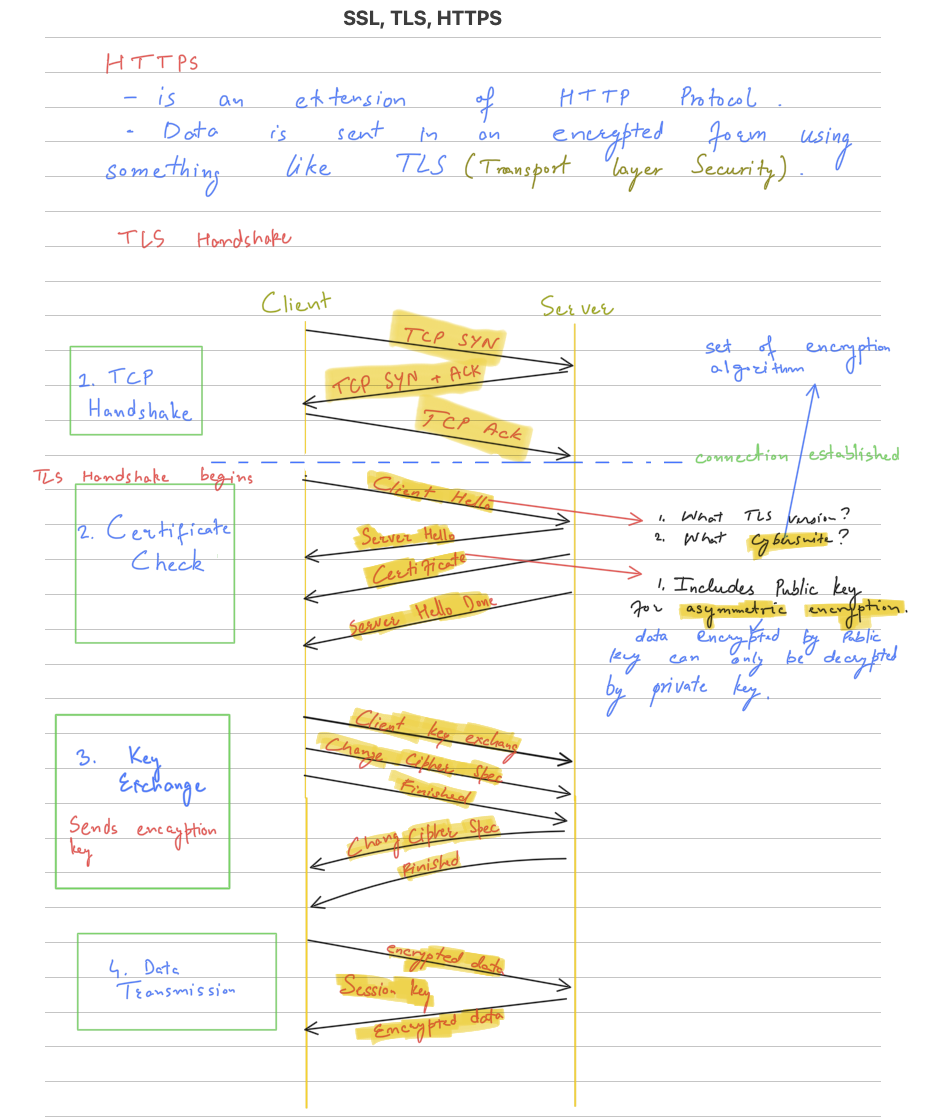 SSL, TLS, HTTPS
HTTPS
- is an extension of HTTP Protocol.
- Data is sent in an encrypted form using
something like TLS (Transport layer Security).
TLS Handshake
Client
Server
TCP SYN
set of encryption
algorithm
1. TCP
Handshake
TCP SYN + ACK
TCP Ack
connection established
TLS Handshake begins
2. Certificate
Check
Client Hello
1. What TLS version?
2. What Cybersuite?
Server Hello
Certificate
1. Includes Public key
for asymmetric encryption.
Server Hello Done
data encrypted by Public
key can only be decrypted
by private key.
3. Key
Exchange
Sends encryption
key
Client key exchang
Change Cipher Spec
Finished
Chang Cipher Spec
Finished
4. Data
Transmission
encrypted data
Session key
Emcrypted data